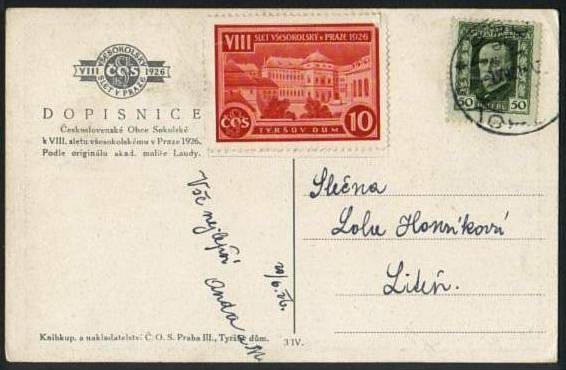 VŠESOKOLSKÝ
VIII ČOS 1926
SLET V PRAZE
DOPISNICE
Československé Obce Sokolské
k VIII. sletu všesokolskému v Praze 1926.
Podle originálu akad. malíře Laudy.
VIII SLET VŠESOKOLSKÝ V PRAZE 1926
ČOS TYRŠŮV DŮM 10
50 HALÉŘŮ 50
Slečna
Liteň.
Vše nejlepší
Anda
20/6. 26.
Knihkup. a nakladatelství Č. O. S. Praha III., Tyršův dům.
3 IV.